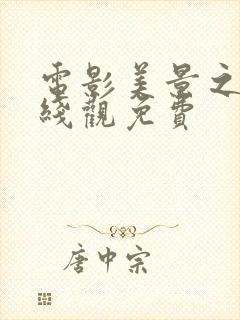 電影美景之
綫觀免費
唐中宗